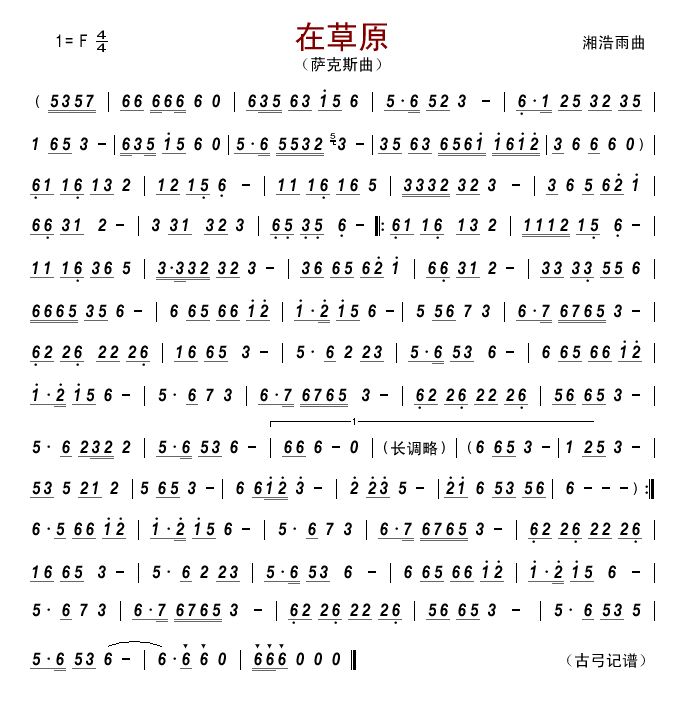 在草原
1= F 4/4
湘浩雨曲
（萨克斯曲）
( 5357 | 66 666 6 0 | 635 63 i5 6 | 5·6 52 3 - | 6·1 25 32 35 |
1 65 3 - | 635 i5 6 0 | 5·6 5532 5 3 - | 35 63 656i i6i2 | 3 6 6 6 0 ) |
61 16 13 2 | 12 15 6 - | 11 16 16 5 | 3332 32 3 - | 3 6 5 62 i |
66 31 2 - | 3 31 32 3 | 65 35 6 - ‖: 61 16 13 2 | 1112 15 6 - |
11 16 36 5 | 3·332 32 3 - | 36 65 62 i | 66 31 2 - | 33 33 55 6 |
6665 35 6 - | 6 65 66 i2 | i·2 i5 6 - | 5 56 7 3 | 6·7 6765 3 - |
62 26 22 26 | 16 65 3 - | 5· 6 2 23 | 5·6 53 6 - | 6 65 66 i2 |
i·2 i5 6 - | 5· 6 7 3 | 6·7 6765 3 - | 62 26 22 26 | 56 65 3 - |
1
5· 6 232 2 | 5·6 53 6 - | 66 6 - 0 | （长调略） | ( 6 65 3 - | 1 25 3 - |
53 5 21 2 | 5 65 3 - | 6 6i2 3 - | 2 23 5 - | 2i 6 53 56 | 6 - - - ) :‖
6·5 66 i2 | i·2 i5 6 - | 5· 6 7 3 | 6·7 6765 3 - | 62 26 22 26 |
16 65 3 - | 5· 6 2 23 | 5·6 53 6 - | 6 65 66 i2 | i·2 i5 6 |
5· 6 7 3 | 6·7 6765 3 - | 62 26 22 26 | 56 65 3 - | 5· 6 53 5 |
5·6 53 6 - | 6· 6 6 0 | 666 0 0 0 ‖
（古弓记谱）